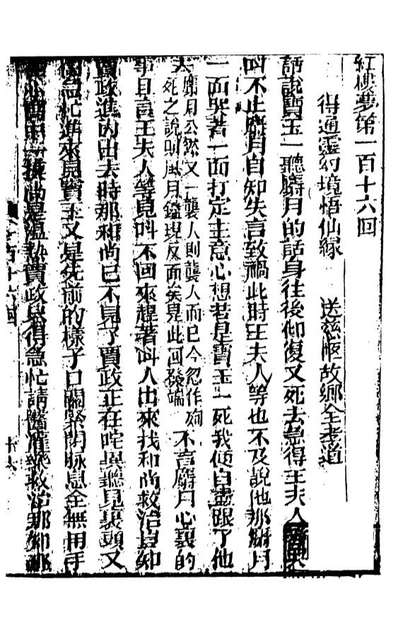 紅樓夢第一百十六回
得通靈幻境悟仙緣　送慈柩故鄉全孝道
話說寶玉一聽麝月的話身往後仰復又死去急得王夫人等哭
叫不止麝月自知失言致禍此時王夫人等也不及說他那麝月
一面哭著一面打定主意心想若是寶玉一死我便自盡跟了他
去
麝月公然又一襲人則襲人而已今忽作殉
死之說則風月鑑現反面矣見此回發端
不言麝月心裏的
事且言王夫人等見叫不回來趕著叫人出來找和尚救治豈知
賈政進內出去時那和尚已不見了賈政正在詫異聽見裏頭又
鬧急忙進來見寶玉又是先前的樣子口關緊閉脉息全無用手
在心窩中一摸尚是溫熱賈政只得急忙請醫灌藥救治那知那